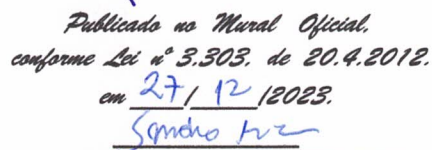 Publicado no Mural Oficial,
conforme Lei nº 3.303, de 20.4.2012.
em 27/12/2023.